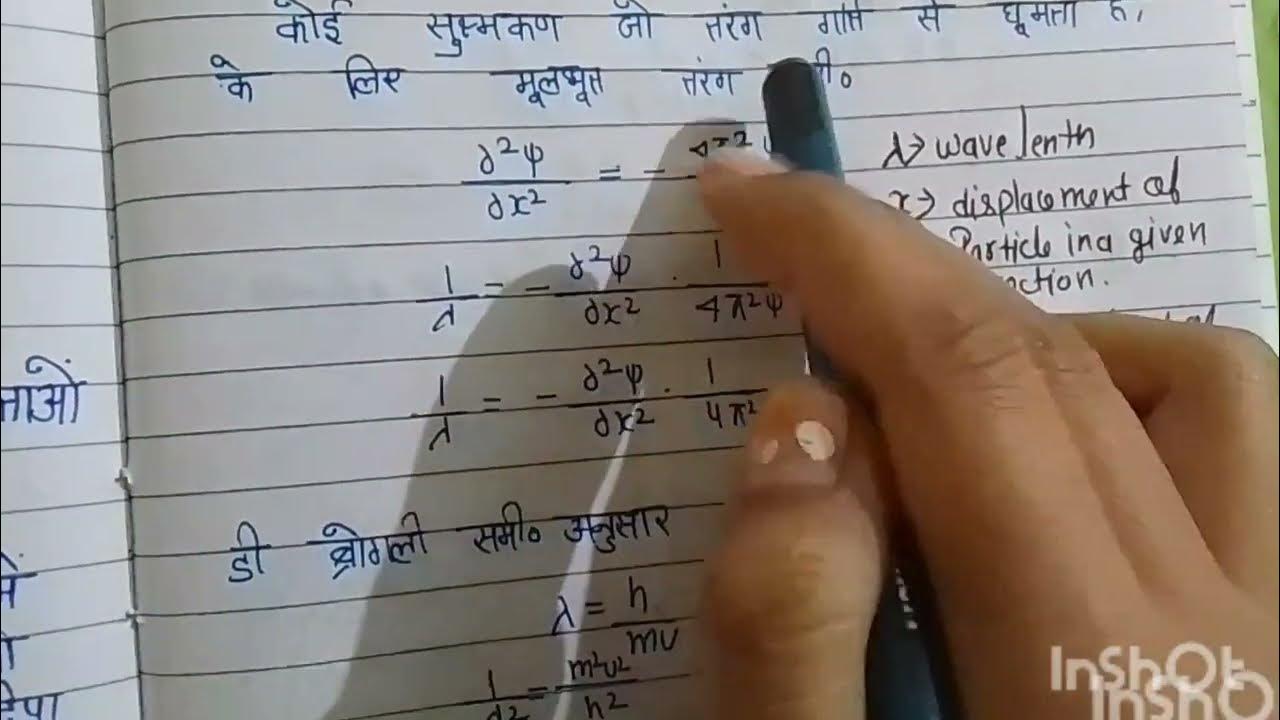 कोई सुक्ष्मकण जो तरंग गति से घूमता है,
के लिए मूलभूत तरंग
∂²ψ/∂x² = -
λ→ wave lenth
x→ displacement of
Particle in a given
1/λ = - ∂²ψ/∂x² · 1/4π²ψ
1/λ = - ∂²ψ/∂x² · 1/4π²
ताओं
डी ब्रोगली समी० अनुसार
λ = h/mv
1/λ² = m²v²/h²
InShOt
InShO